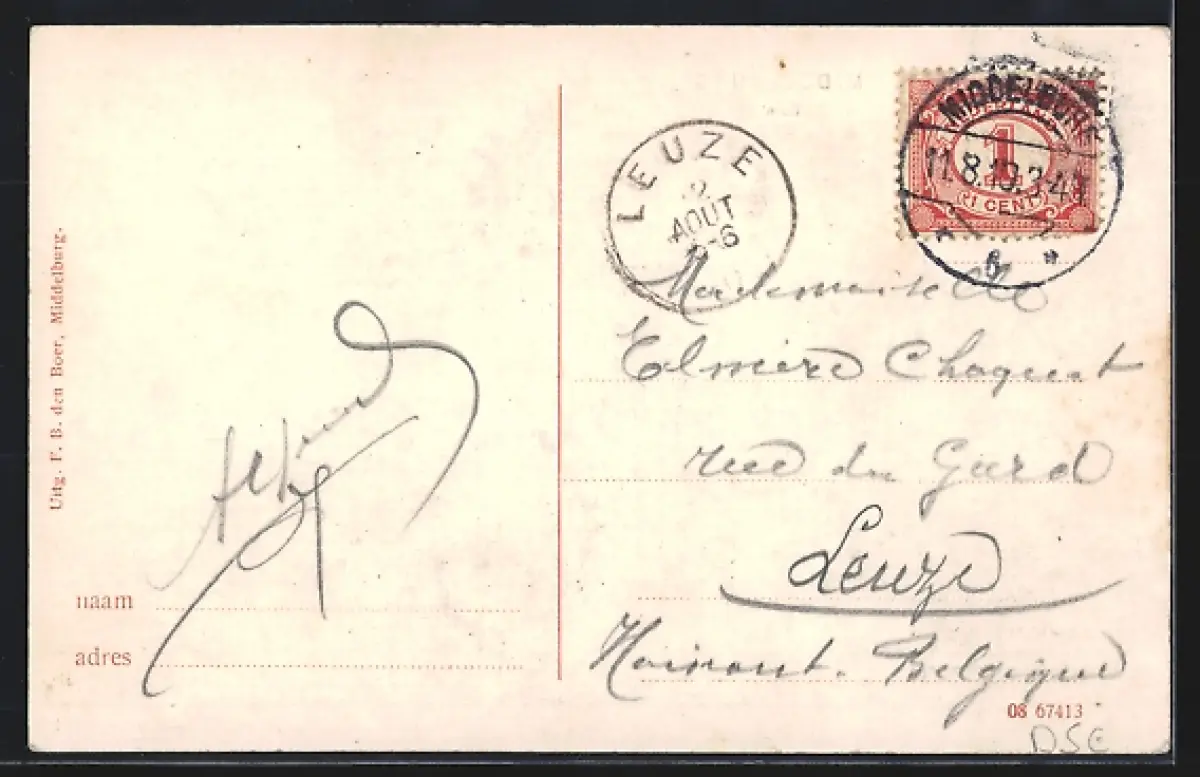 Uitg. F. B. den Boer, Middelburg.
naam
adres
LEUZE
AOUT
-6
MIDDELBURG
11.8.10.3-4
6
1
1 CENT
Mademoiselle
Elmire
rue du Gard
Leuze
Hainaut. Belgique
08 67413
DSE